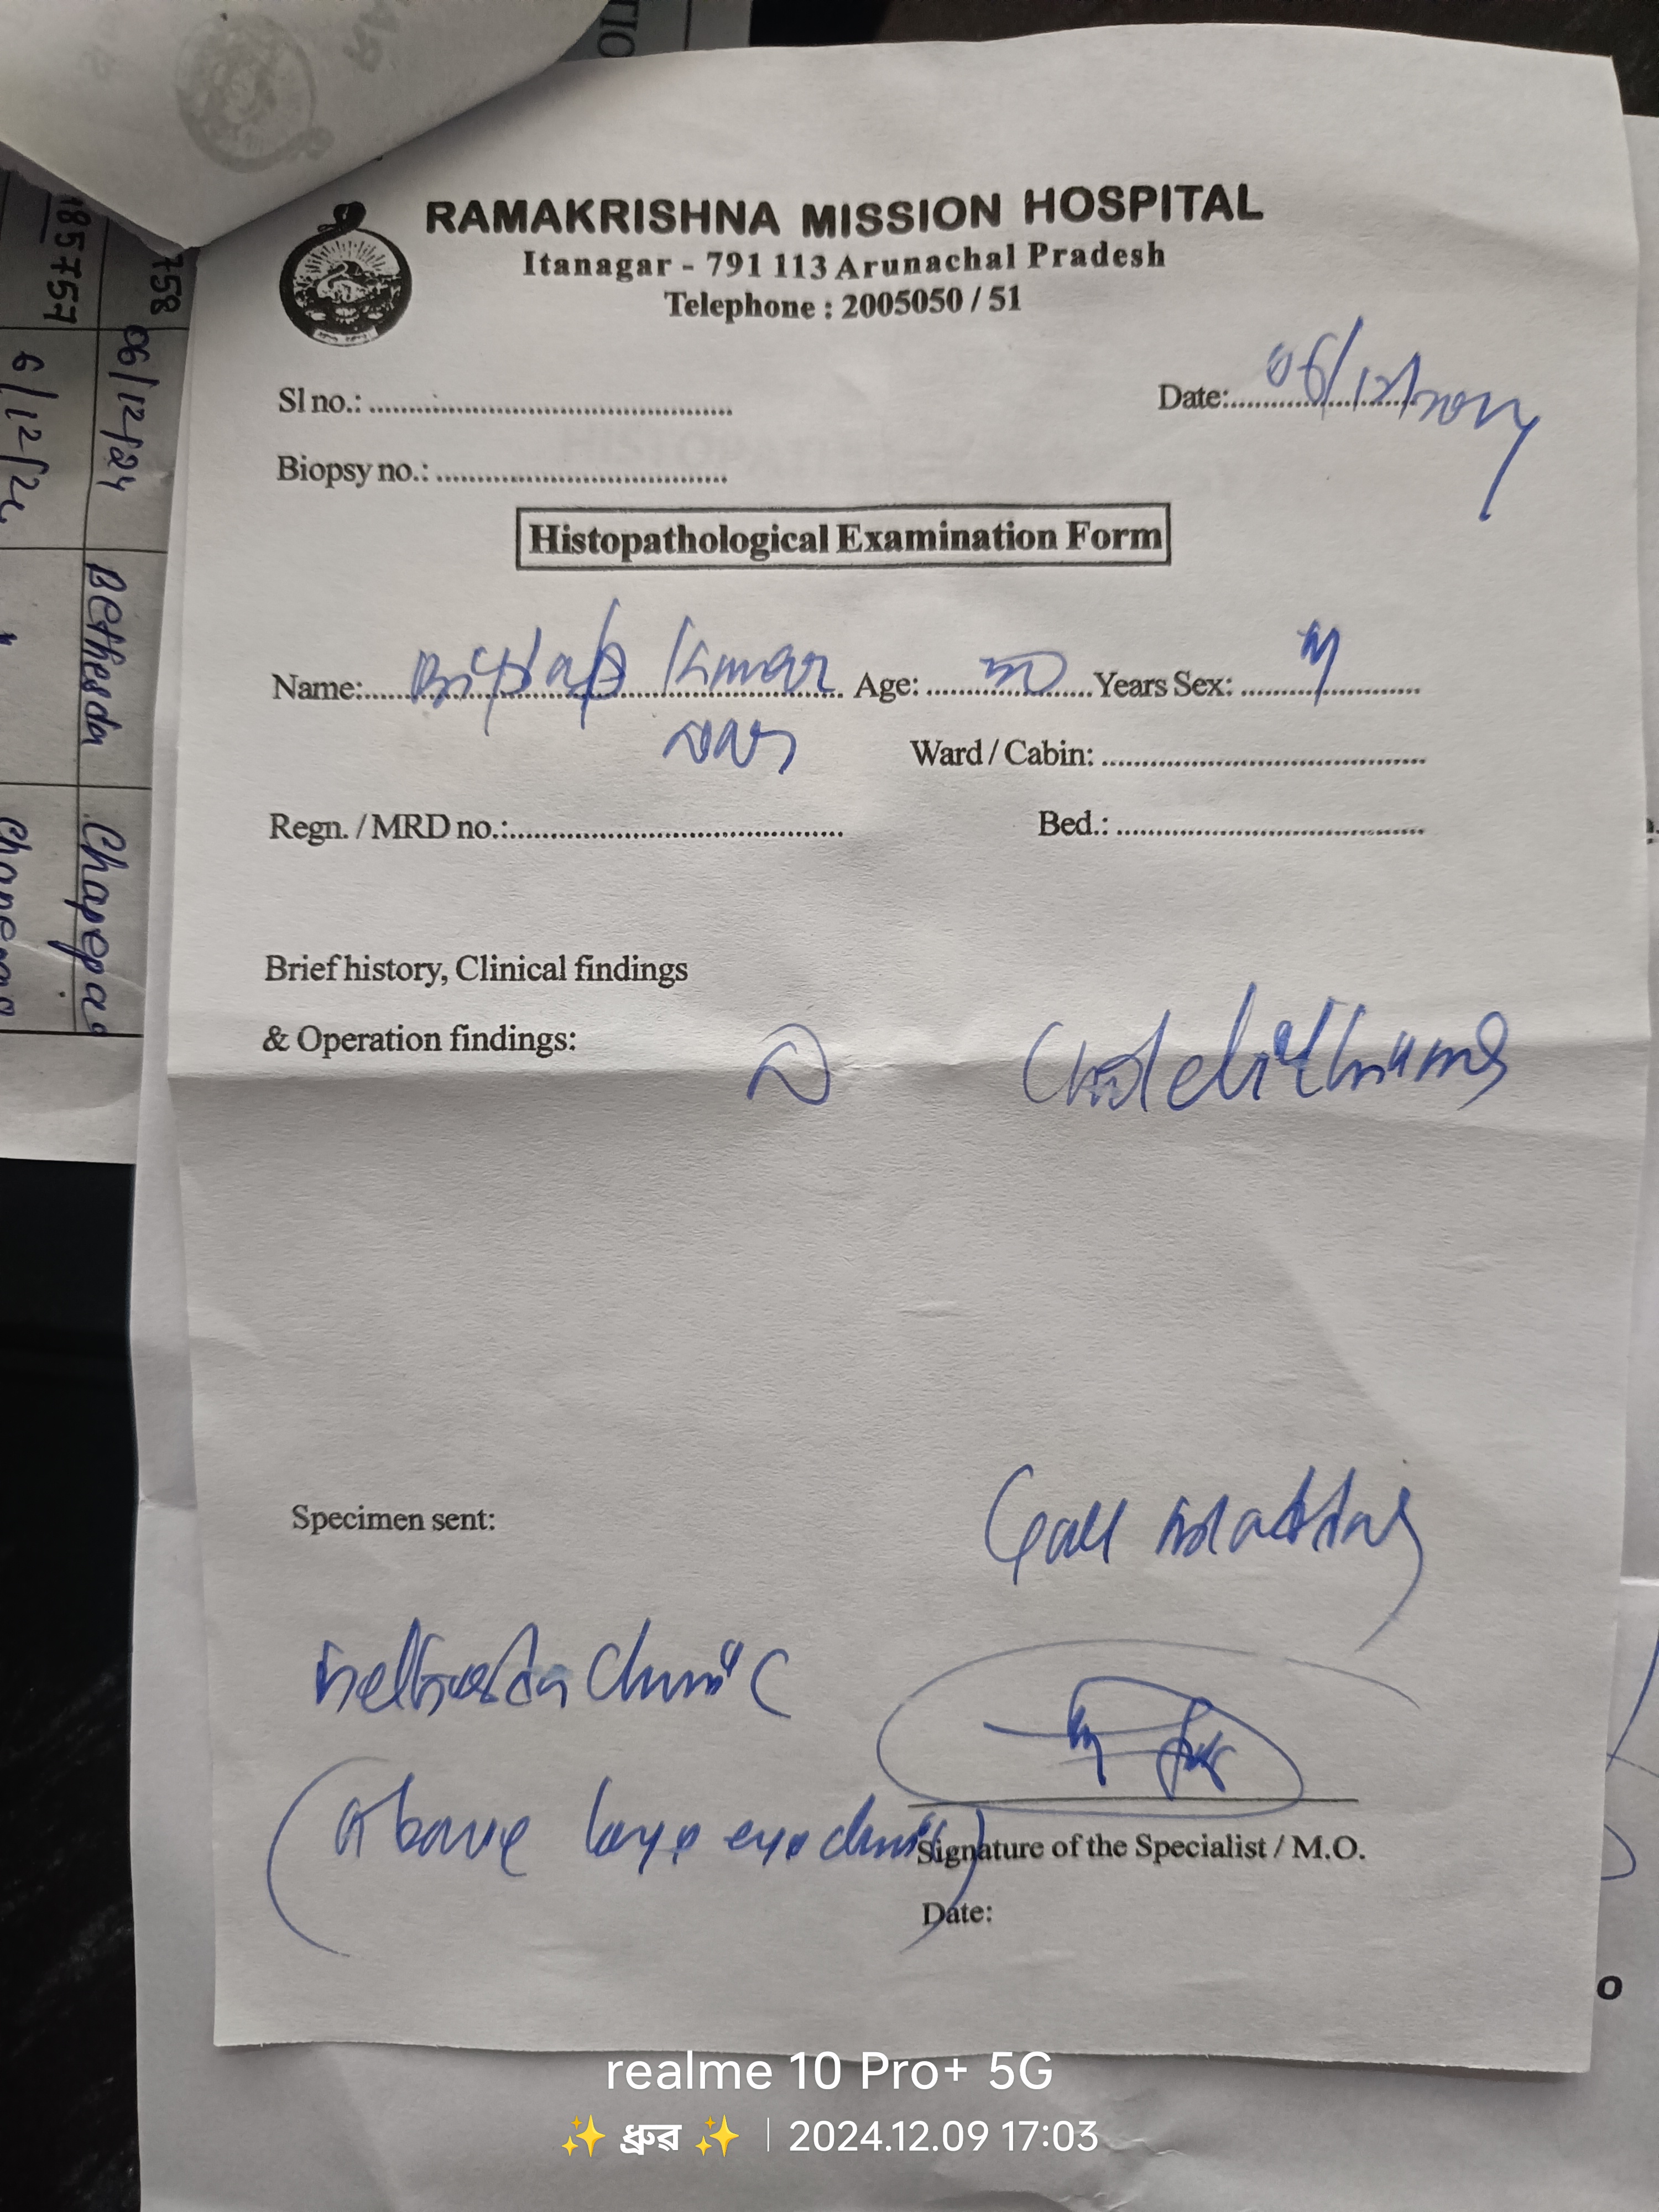 RAMAKRISHNA MISSION HOSPITAL
Itanagar - 791 113 Arunachal Pradesh
Telephone : 2005050 / 51
Sl no.: ........................................ Date: 06/12/2024
Biopsy no.: ................................
Histopathological Examination Form
Name: Kumar Age: Years Sex: M
Ward / Cabin: ........................................
Regn. / MRD no.:........................................ Bed.: ........................................
Brief history, Clinical findings
& Operation findings: Cholelithiasis
Specimen sent: Gall bladder
Bethesda Clinic
(Above eye clinic)
Signature of the Specialist / M.O.
Date:
758 06/12/24 Bethesda Chapepa
185757 6/12/24
realme 10 Pro+ 5G
✨ ধ্রুৱ ✨ | 2024.12.09 17:03